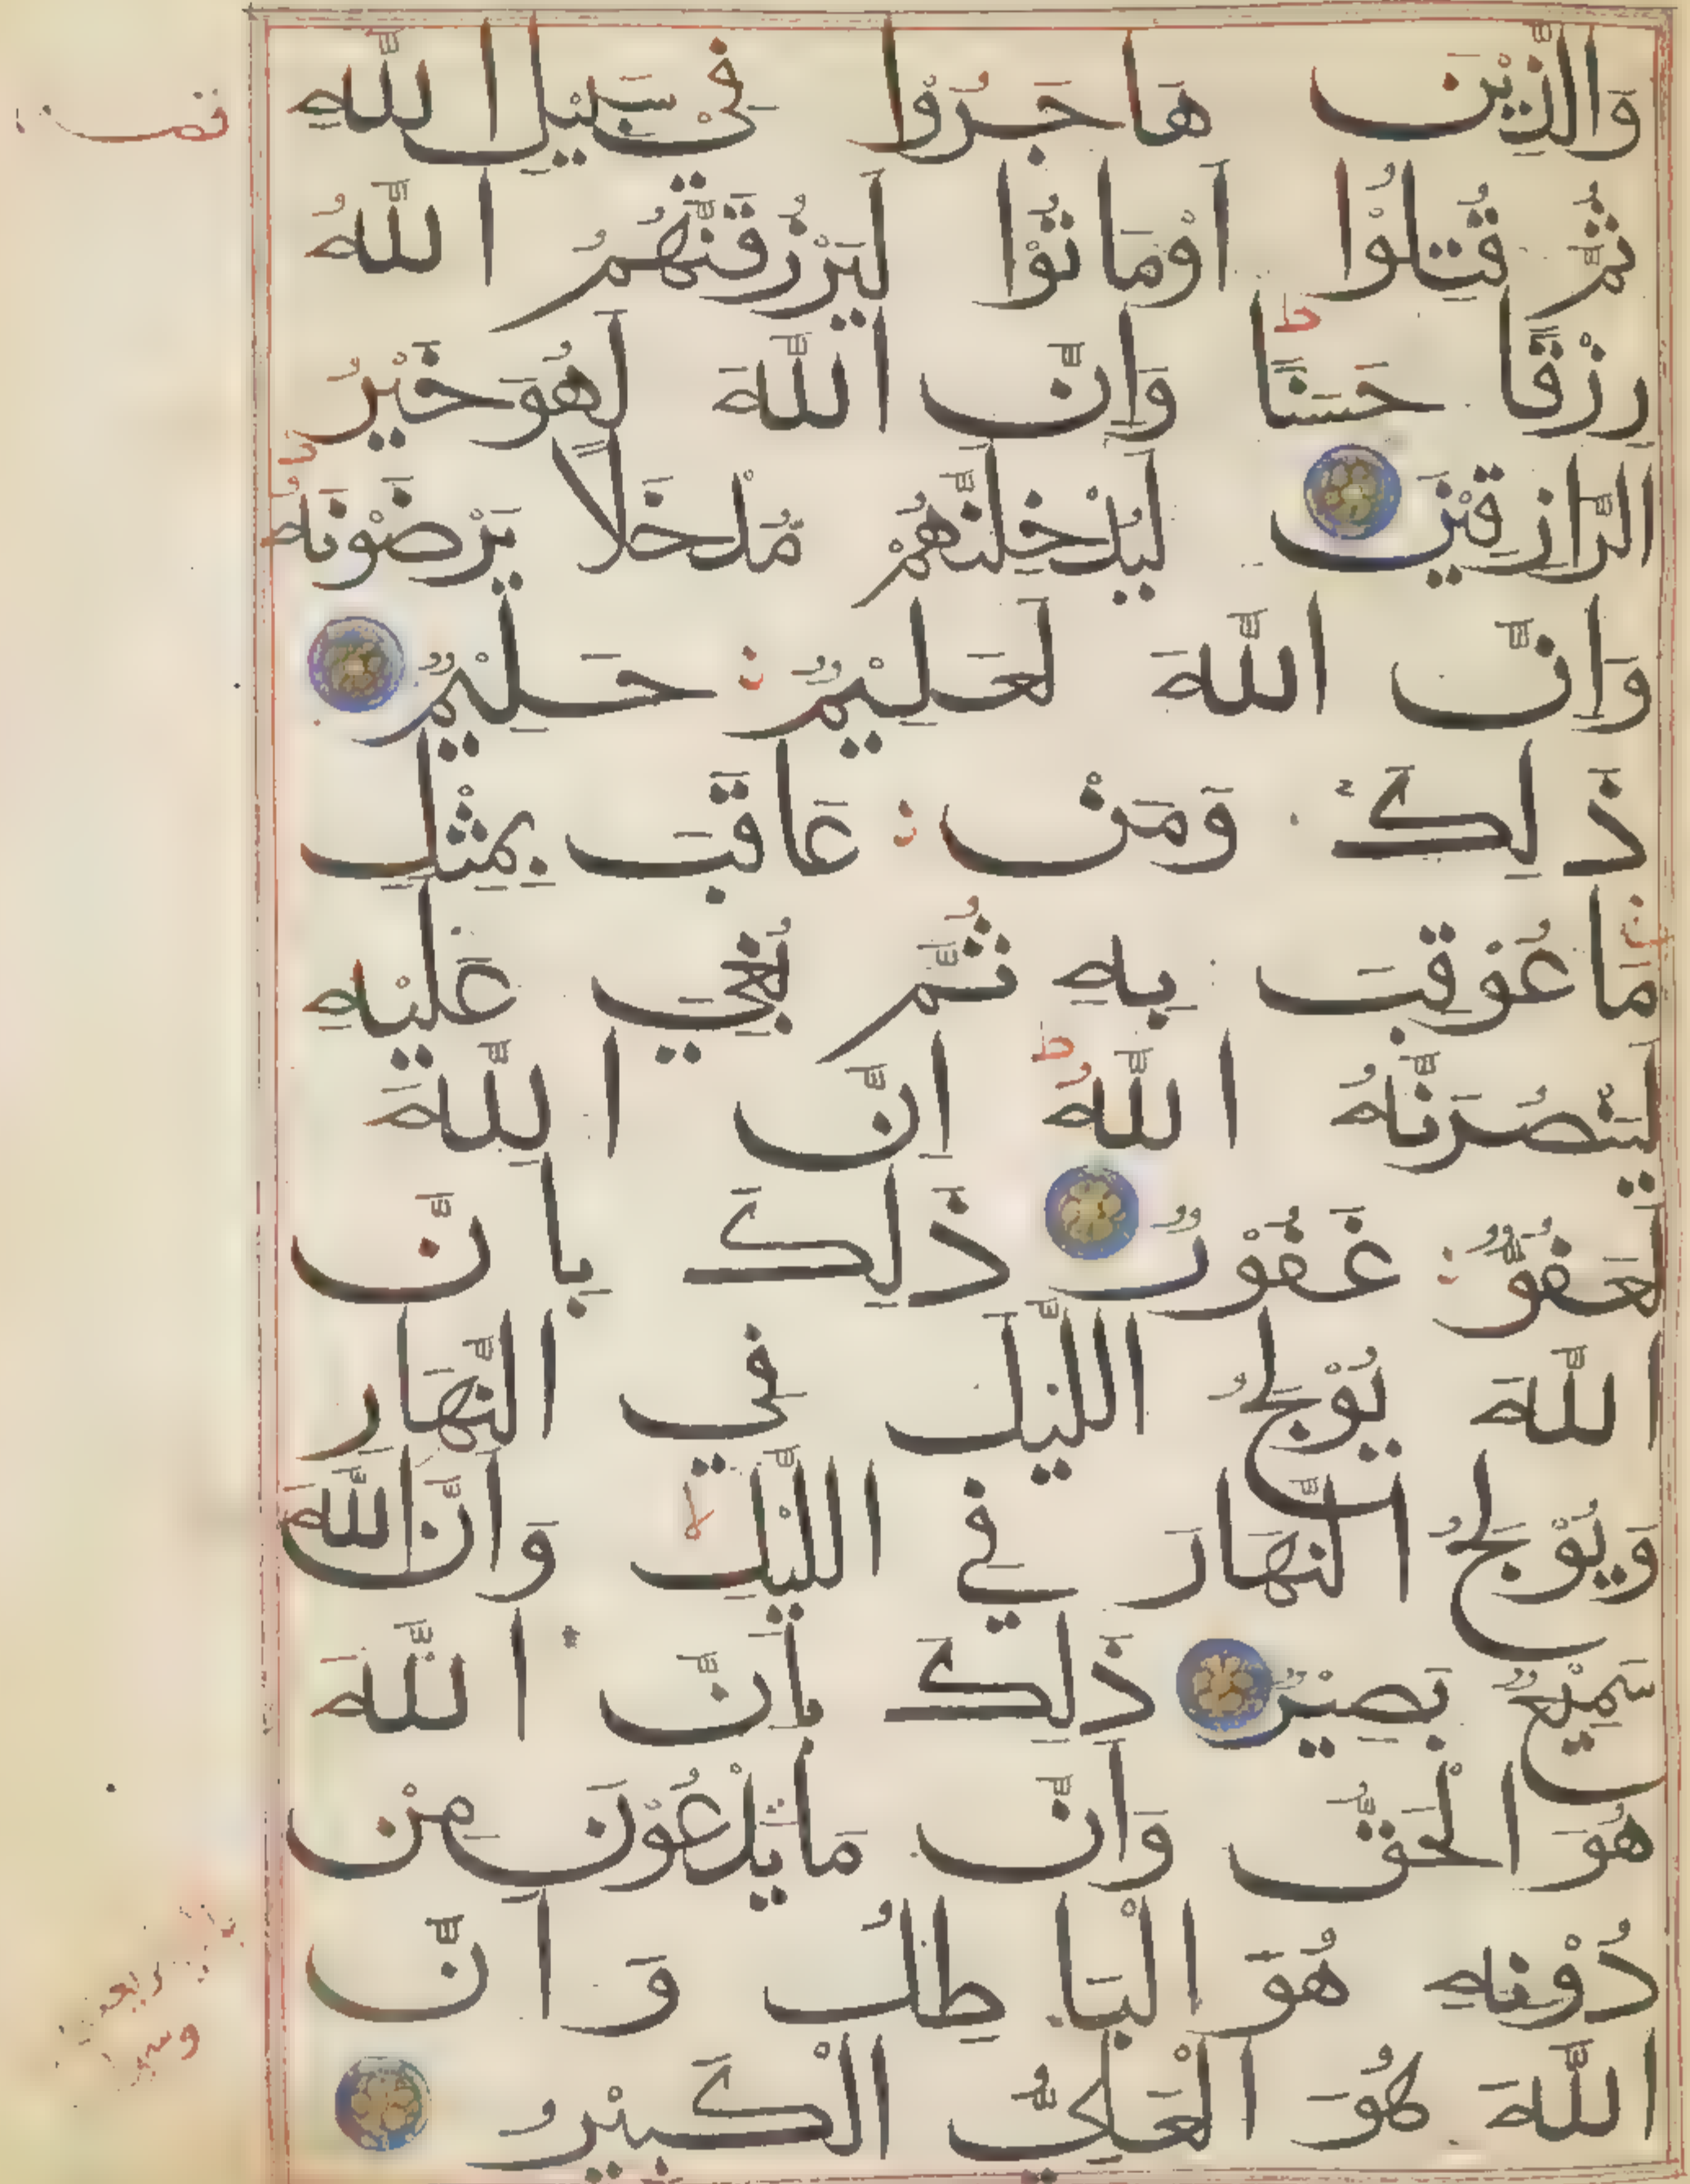 وَالَّذِيْنَ هَاجَرُوْا فِيْ سَبِيْلِ اللّٰهِ
ثُمَّ قُتِلُوْا اَوْمَاتُوْا لَيَرْزُقَنَّهُمُ اللّٰهُ
رِزْقًا حَسَنًا ط وَاِنَّ اللّٰهَ لَهُوَ خَيْرُ
الرَّازِقِيْنَ لَيُدْخِلَنَّهُمْ مُّدْخَلًا يَرْضَوْنَهُ ط
وَاِنَّ اللّٰهَ لَعَلِيْمٌ حَلِيْمٌ
ذٰلِكَ وَمَنْ عَاقَبَ بِمِثْلِ
مَاعُوْقِبَ بِهِ ثُمَّ بُغِيَ عَلَيْهِ
لَيَنْصُرَنَّهُ اللّٰهُ ط اِنَّ اللّٰهَ
لَعَفُوٌّ غَفُوْرٌ ذٰلِكَ بِاَنَّ
اللّٰهَ يُوْلِجُ اللَّيْلَ فِي النَّهَارِ
وَيُوْلِجُ النَّهَارَ فِي اللَّيْلِ لا وَاَنَّ اللّٰهَ
سَمِيْعٌ بَصِيْرٌ ذٰلِكَ بِاَنَّ اللّٰهَ
هُوَ الْحَقُّ وَاَنَّ مَايَدْعُوْنَ مِنْ
دُوْنِهِ هُوَ الْبَاطِلُ وَاَنَّ
اللّٰهَ هُوَ الْعَلِيُّ الْكَبِيْرُ